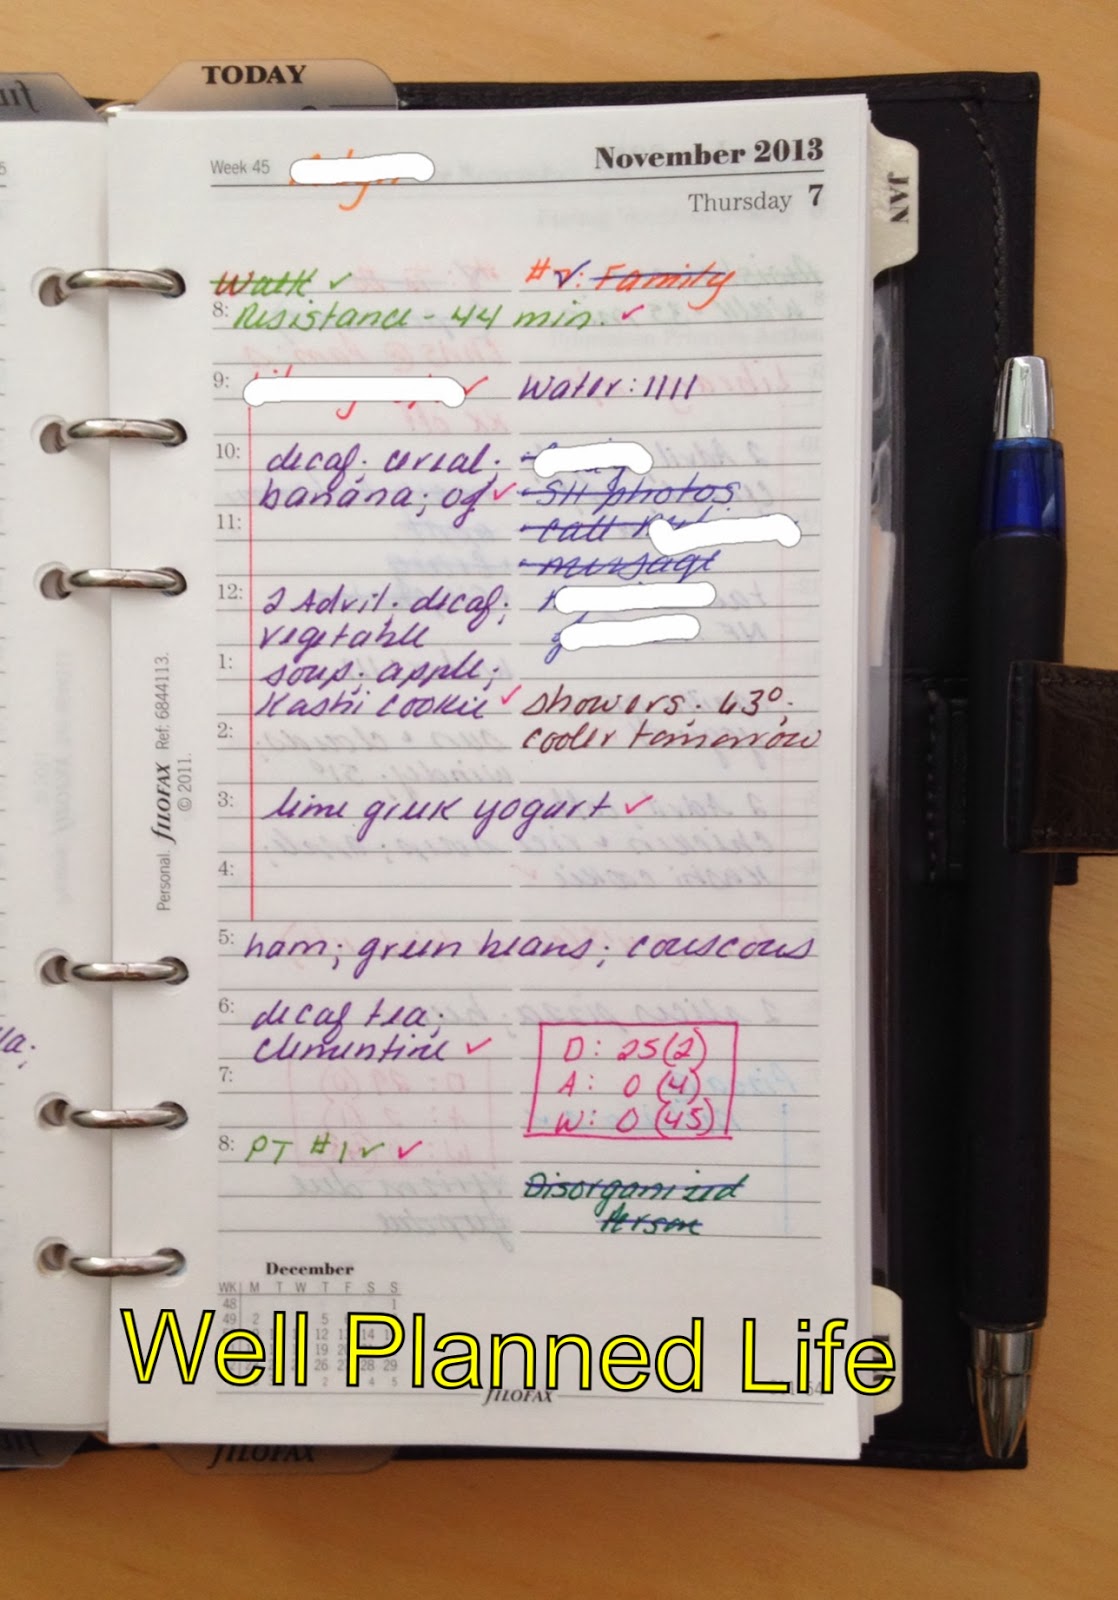 TODAY
Week 45
November 2013
Thursday 7
Walk ✓
#2: Family
8: Resistance - 44 min. ✓
9:
Water: IIII
10: decaf; cereal;
banana; oj ✓
SH photos
11:
call
message
12: 2 Advil; decaf;
vegetable
1: soup; apple;
Kashi cookie ✓
showers; 63°;
2:
cooler tomorrow
3: lime greek yogurt ✓
4:
5: ham; green beans; couscous
6: decaf tea;
clementine ✓
D: 25(2)
7:
A: 0 (4)
W: 0 (45)
8: PT #1 ✓ ✓
Disorganized
Person
JAN
Personal. FILOFAX Ref: 6844113.
© 2011.
December
WK M T W T F S S
48 1
49 2 5
12 13 14
19
26 27 28 29
Well Planned Life
FILOFAX
FILOFAX